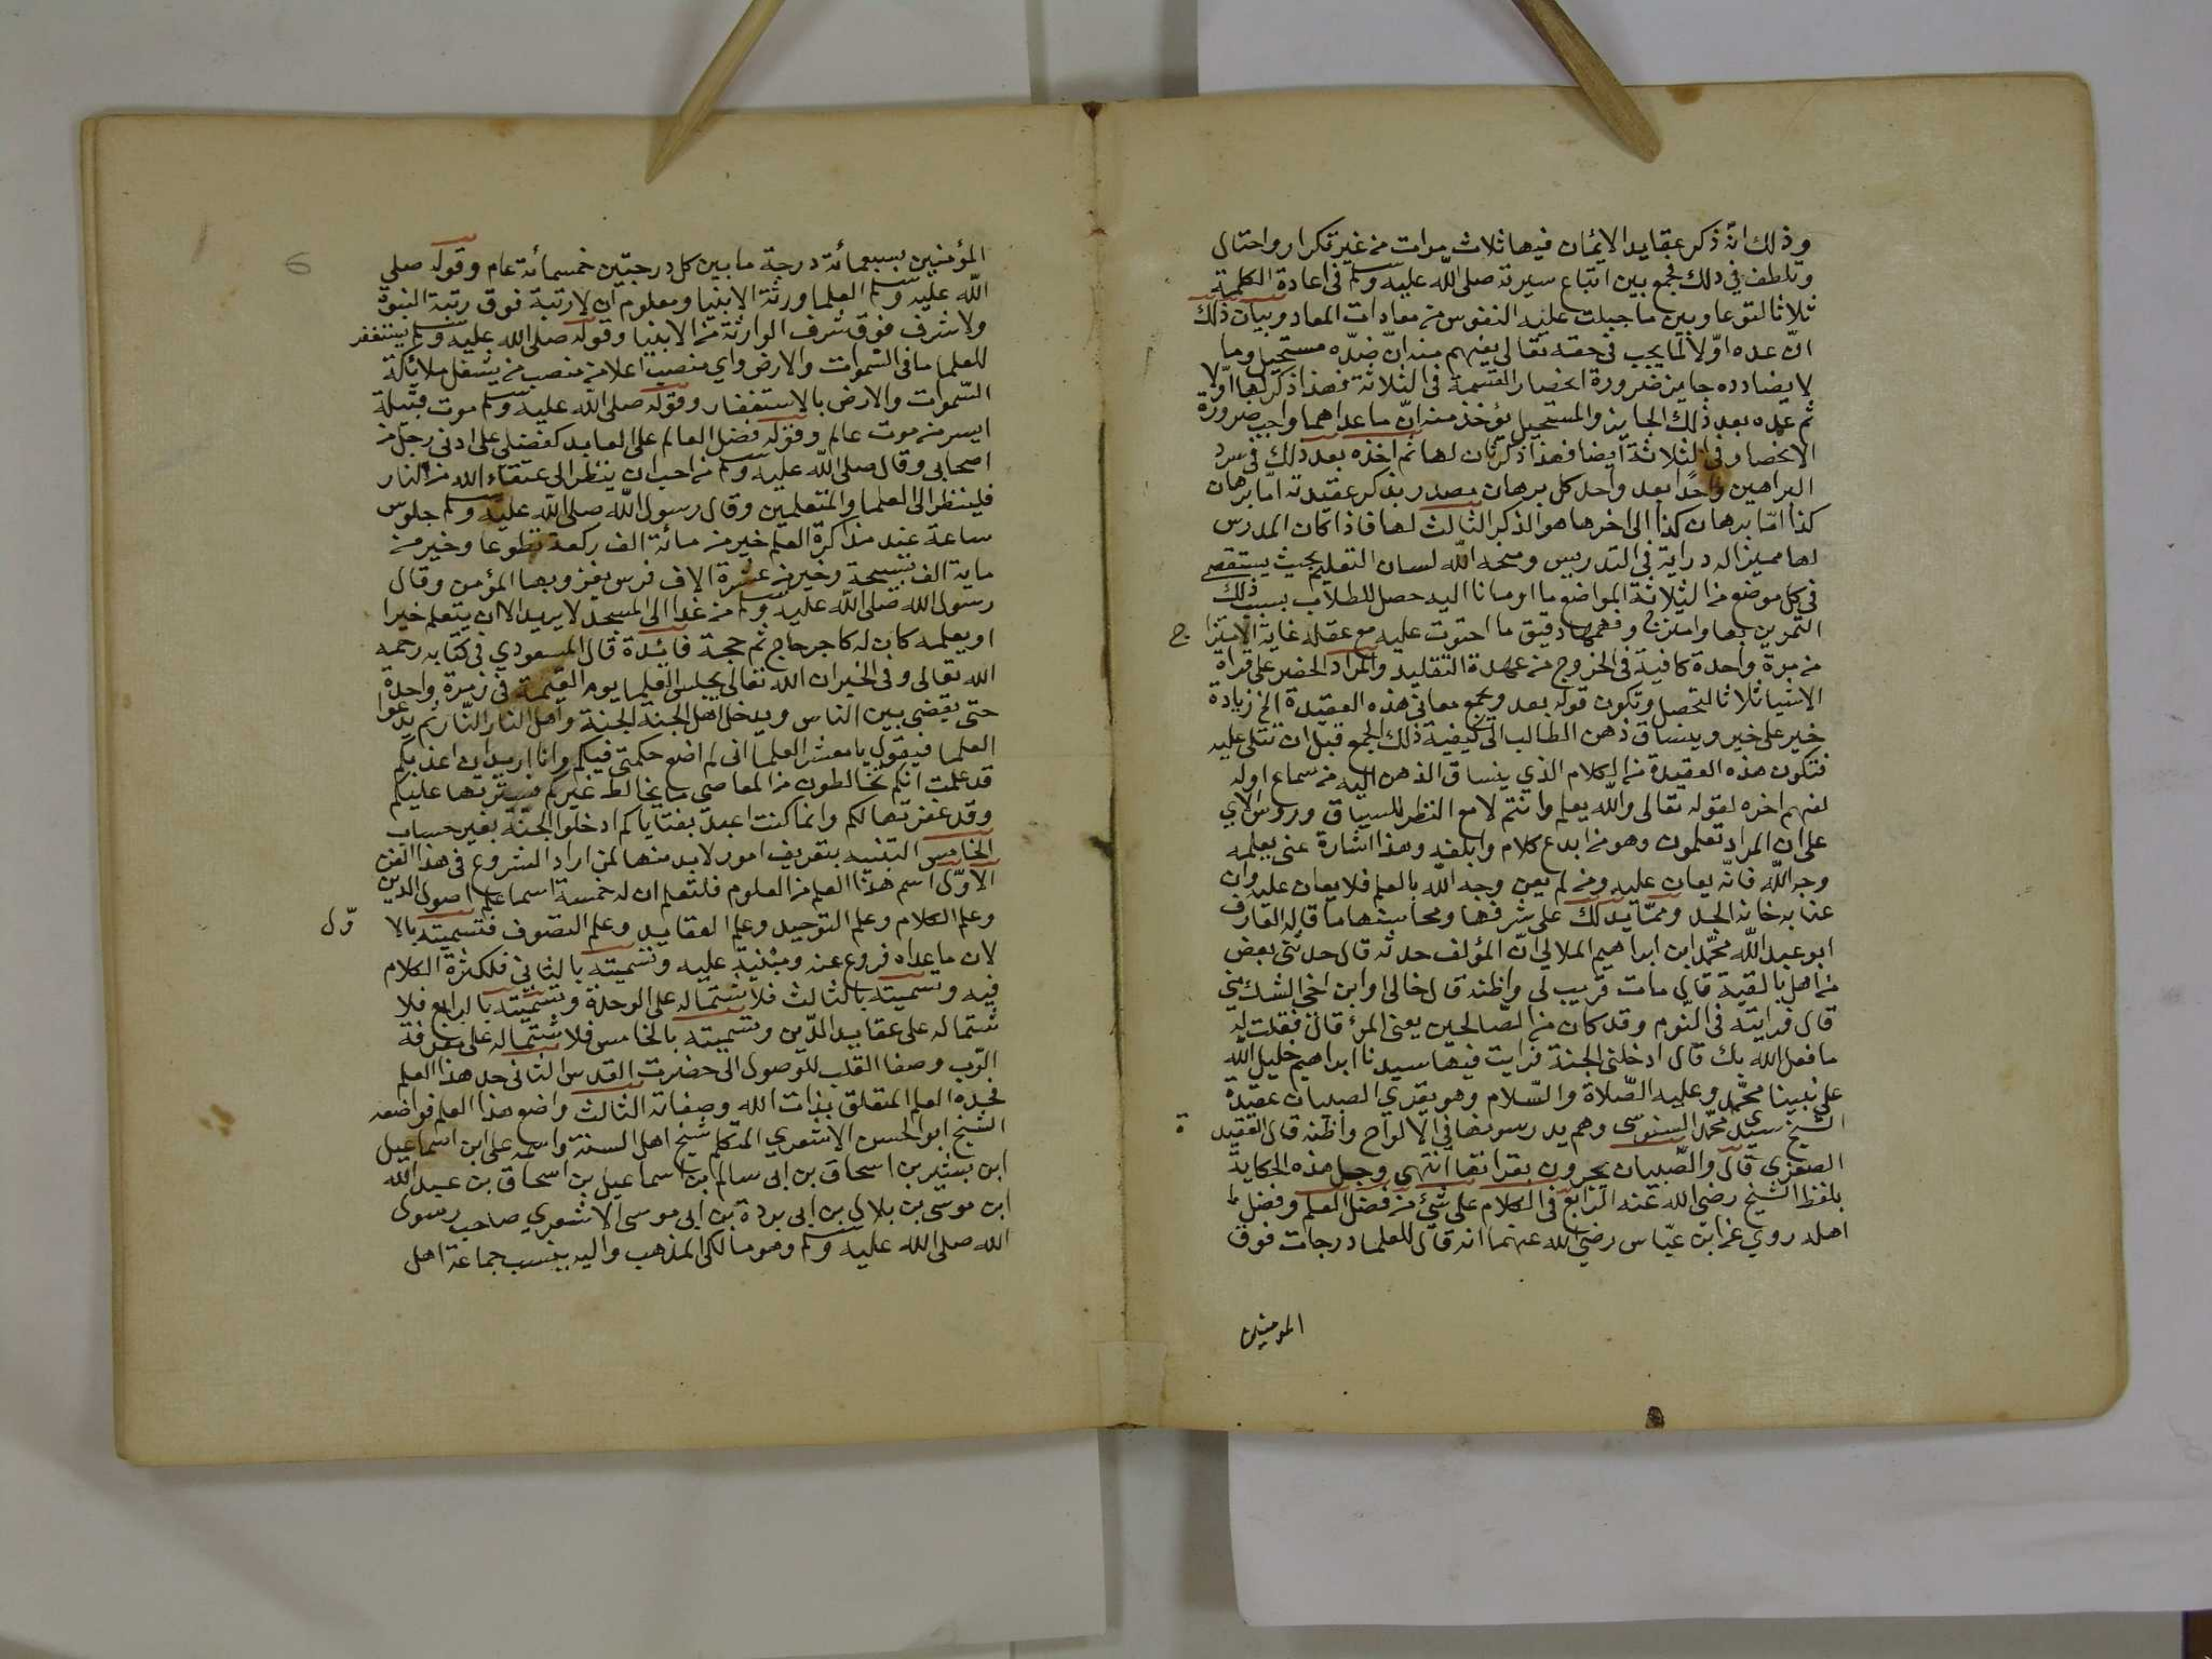 وذلك انّه ذكر عقايد الايمان فيها ثلاث مرات من غير تكرار واحتال
وتلطف في ذلك فجمع بين اتباع سيرته صلى الله عليه وسلم في اعادة الكلمة
ثلاثا لتوعا وبين ما جبلت عليه النفوس من معادات المعاد وبيان ذلك
انّ عده اوّلا لما يجب في حقه تعالى يفهم منه انّ ضدّه مستحيل وما
لا يضادده جايز ضرورة انحصار القسمة في الثلاثة فهذا ذكر لها اوّلا
ثم عده بعد ذلك الجايز والمستحيل يؤخذ منه انّ ما عداهما واجب ضرورة
الانحصار في الثلاثة ايضا فهذا ذكر ثان لها ثم اخذه بعد ذلك في سرد
البراهين واحدًا بعد واحد كل برهان مصدر بذكر عقيدته امّا برهان
كذا امّا برهان كذا الى اخرها هو الذكر الثالث لها فاذا كان المدرس
لها ممين له دراية في التدريس ومنحه الله لسان التعليم بحيث يستقصى
في كل موضع من الثلاثة المواضع ما اومانا اليه حصل للطلاب بسبب ذلك
التمرين بها وامتزج وفهمها دقيق ما احتوت عليه مع عقله غاية الامتزا ج
من مرة واحدة كافية في الخروج من عهدة التقليد والمراد الحضير على قراة
الاشيا ثلاثا لتحصل وتكون قوله بعد ويجمع معاني هذه العقيدة الخ زيادة
خير على خير وينساق ذهن الطالب الى كيفية ذلك الجمع قبل ان تتلى عليه
فتكون هذه العقيدة من الكلام الذي ينساق الذهن اليه من سماع اوله
لفهم اخره لقوله تعالى والله يعلم وانتم لا مع النظر للسياق وروس الاي
على ان المراد تعلمون وهو من ابدع كلام وابلغه وهذا اشارة عنى بعلمه
وجه الله فانّه يعان عليه ومن لم يعن وجه الله بالعلم فلا يعان عليه وان
عنا به خانه الجد وممّا يدلك على شرفها ومحاسنها ما قاله العارف
ابو عبد الله محمّد ابن ابراهيم الملالي انّ المؤلف حدثه قال حدثني بعض
من اهل بالقية قال مات قريب لي واظنه قال خالي او ابن اخي الشك مني
قال فرايته في النّوم وقد كان من الصّالحين يعنى المؤ قال فقلت له
ما فعل الله بك قال ادخلني الجنة فرايت فيها سيدنا ابراهيم خليل الله
على نبينا محمّد وعليه الصّلاة والسّلام وهو يقري الصبيان عقيدة
الشيخ سيدي محمّد السنوسى وهم يدرسونها في الالواح واظنه قال العقيد ة
الصغرى قال والصّبيان يجرون بقراتها انتهى وجل هذه الحكاية
بلفظ الشيخ رضي الله عنه الرابع في الكلام على شئ من فضل العلم وفضل
اهله روي عن ابن عبّاس رضي الله عنهما انه قال للعلما درجات فوق
المومنين
المؤمنين بسبعمائة درجة ما بين كل درجتين خمسمائة عام وقوله صلى
الله عليه وسلم العلما ورثة الانبيا ومعلوم ان لا رتبة فوق رتبة النبوة
ولا شرف فوق شرف الوارثة من الانبيا وقوله صلى الله عليه وسلم يستغفر
للعلما ما في السّموات والارض واي منصب اعلا من منصب من يشغل ملائكة
السّموات والارض بالاستغفار وقوله صلى الله عليه وسلم موت قبيلة
ايسر من موت عالم وقوله فضل العالم على العابد كفضلى على ادنى رجل من
اصحابي وقال صلى الله عليه وسلم من احب ان ينظر الى عتقاء الله من النار
فلينظر الى العلما والمتعلمين وقال رسول الله صلى الله عليه وسلم جلوس
ساعة عند مذاكرة العلم خير من مائة الف ركعة تطوعا وخير من
ماية الف تسبيحة وخير من عشرة الاف فرس يغزو بها المؤمن وقال
رسول الله صلى الله عليه وسلم من غدا الى المسجد لا يريد الا ان يتعلم خيرا
او يعلمه كان له كاجر حاج تم حجة فائدة قال المسعودي في كتابه رحمه
الله تعالى وفي الخبر ان الله تعالى يجلس العلما يوم القيمة في زمرة واحدة
حتى يقضي بين الناس ويدخل اهل الجنة الجنة واهل النار النّار ثم يدعوا
العلما فيقول يا معشر العلما انى لم اضع حكمتي فيكم وانا اريد ان اعذبكم
قد علمت انكم تخالطون من المعاصي ما يخالط غيركم فسترتها عليكم
وقد غفرتها لكم وانما كنت اعبد بفتاياكم ادخلوا الجنّة بغير حساب
الخامس التنبيه بتعريف امور لابد منها لمن اراد الشروع في هذا الفن
الاوّل اسم هذا العلم من العلوم فلتعلم ان له خمسة اسما علم اصول الدين
وعلم الكلام وعلم التوحيد وعلم العقايد وعلم التصوف فتسميته بالا وّل
لان ما عداه فروع عنه ومبنية عليه وتسميته بالثاني فلكثرة الكلام
فيه وتسميته بالثالث فلاشتماله على الوحدة وتسميته بالرابع فلا
شتماله على عقايد الدّين وتسميته بالخامس فلاشتماله على معرفة
الرّب وصفا القلب للوصول الى حضرت القدس الثانى حد هذا العلم
فحده العلم المتعلق بذات الله وصفاته الثالث واضع هذا العلم فواضعه
الشيخ ابو الحسن الاشعري المتكلم شيخ اهل السنة واسمه على ابن اسماعيل
ابن بشير بن اسحاق بن ابى سالم ابن اسماعيل بن اسحاق بن عبد الله
ابن موسى بن بلال بن ابى بردة بن ابى موسى الاشعري صاحب رسول
الله صلى الله عليه وسلم وهو مالكي المذهب واليه ينسب جماعة اهل